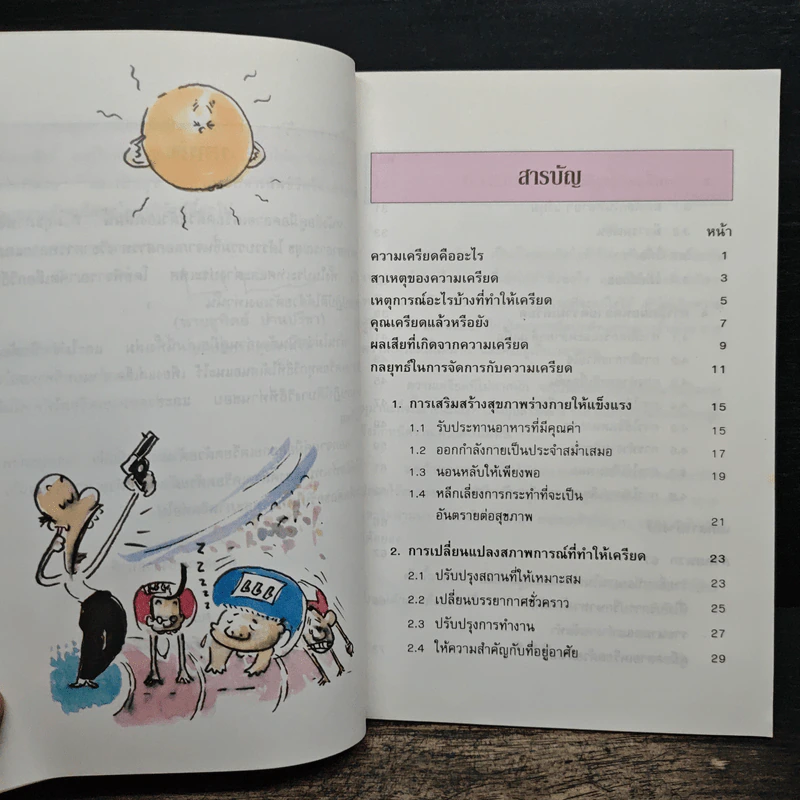 สารบัญ
หน้า
ความเครียดคืออะไร 1
สาเหตุของความเครียด 3
เหตุการณ์อะไรบ้างที่ทำให้เครียด 5
คุณเครียดแล้วหรือยัง 7
ผลเสียที่เกิดจากความเครียด 9
กลยุทธ์ในการจัดการกับความเครียด 11
1. การเสริมสร้างสุขภาพร่างกายให้แข็งแรง 15
1.1 รับประทานอาหารที่มีคุณค่า 15
1.2 ออกกำลังกายเป็นประจำสม่ำเสมอ 17
1.3 นอนหลับให้เพียงพอ 19
1.4 หลีกเลี่ยงการกระทำที่จะเป็น
อันตรายต่อสุขภาพ 21
2. การเปลี่ยนแปลงสภาพการณ์ที่ทำให้เครียด 23
2.1 ปรับปรุงสถานที่ให้เหมาะสม 23
2.2 เปลี่ยนบรรยากาศชั่วคราว 25
2.3 ปรับปรุงการทำงาน 27
2.4 ให้ความสำคัญกับที่อยู่อาศัย 29
z z z z z z